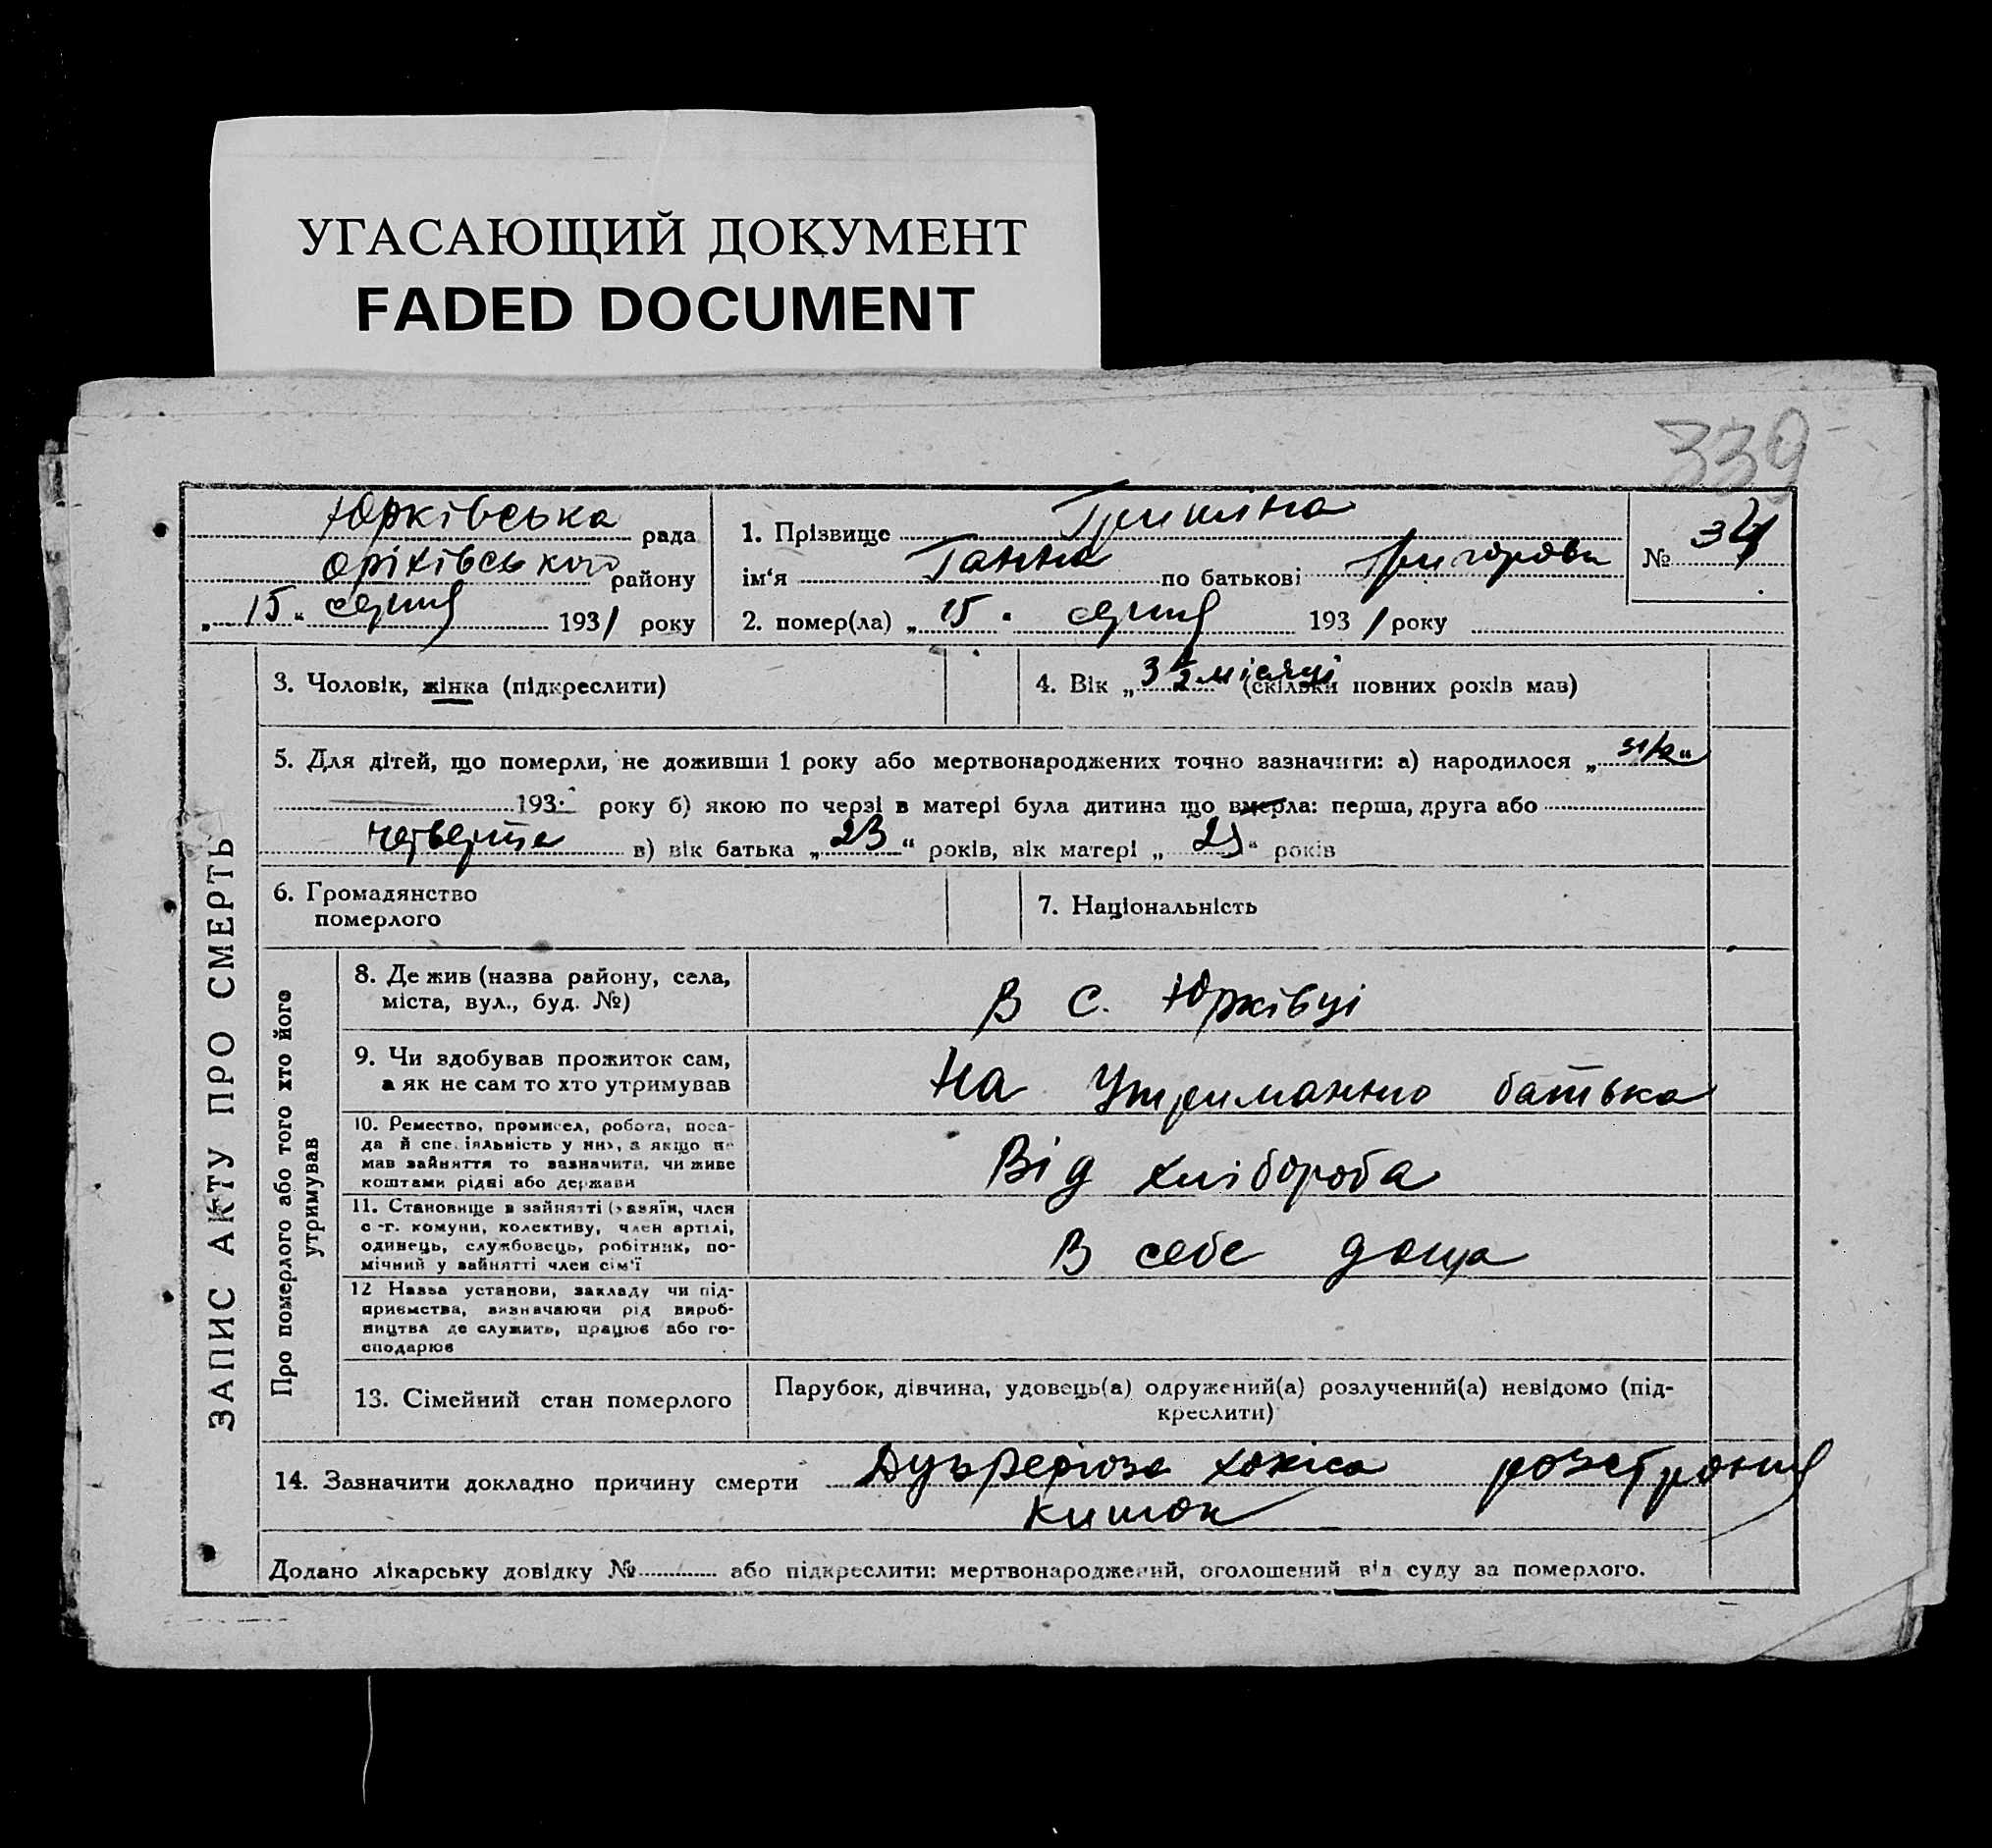 УГАСАЮЩИЙ ДОКУМЕНТ
FADED DOCUMENT
339
Юрківська рада
Оріхівського району
„ 15 “ серпня 1931 року
1. Прізвище Гришина
ім‘я Ганна по батькові Григорова
№ 34
2. помер(ла) „ 15 “ серпня 1931 року
ЗАПИС АКТУ ПРО СМЕРТЬ
3. Чоловік, жінка (підкреслити)
4. Вік „ 3 1/2 місяці (скільки повних років мав)
5. Для дітей, що померли, не доживши 1 року або мертвонароджених точно зазначити: а) народилося „ “
193 року б) якою по черзі в матері була дитина що вмерла: перша, друга або
четверта в) вік батька „ 23 “ років, вік матері „ “ років
6. Громадянство
померлого
7. Національність
Про померлого або того хто його
утримував
8. Де жив (назва району, села,
міста, вул., буд. №)
В с. Юрківці
9. Чи здобував прожиток сам,
а як не сам то хто утримував
На утриманню батька
10. Ремество, промисел, робота, поса-
да й спеціяльність у них, а якщо не
мав зайняття то зазначити, чи живе
коштами рідні або держави
Від хлібороба
11. Становище в зайнятті (хазяїн, член
с.-г. комуни, колективу, член артілі,
одинець, службовець, робітник, по-
мічний у зайнятті член сім'ї
В себе дома
12 Назва установи, закладу чи під-
приємства, визначаючи рід вироб-
ництва де служить, працює або го-
сподарює
13. Сімейний стан померлого
Парубок, дівчина, удовець(а) одружений(а) розлучений(а) невідомо (під-
креслити)
14. Зазначити докладно причину смерти розстроння
кишок
Додано лікарську довідку № або підкреслити: мертвонароджений, оголошений від суду за померлого.